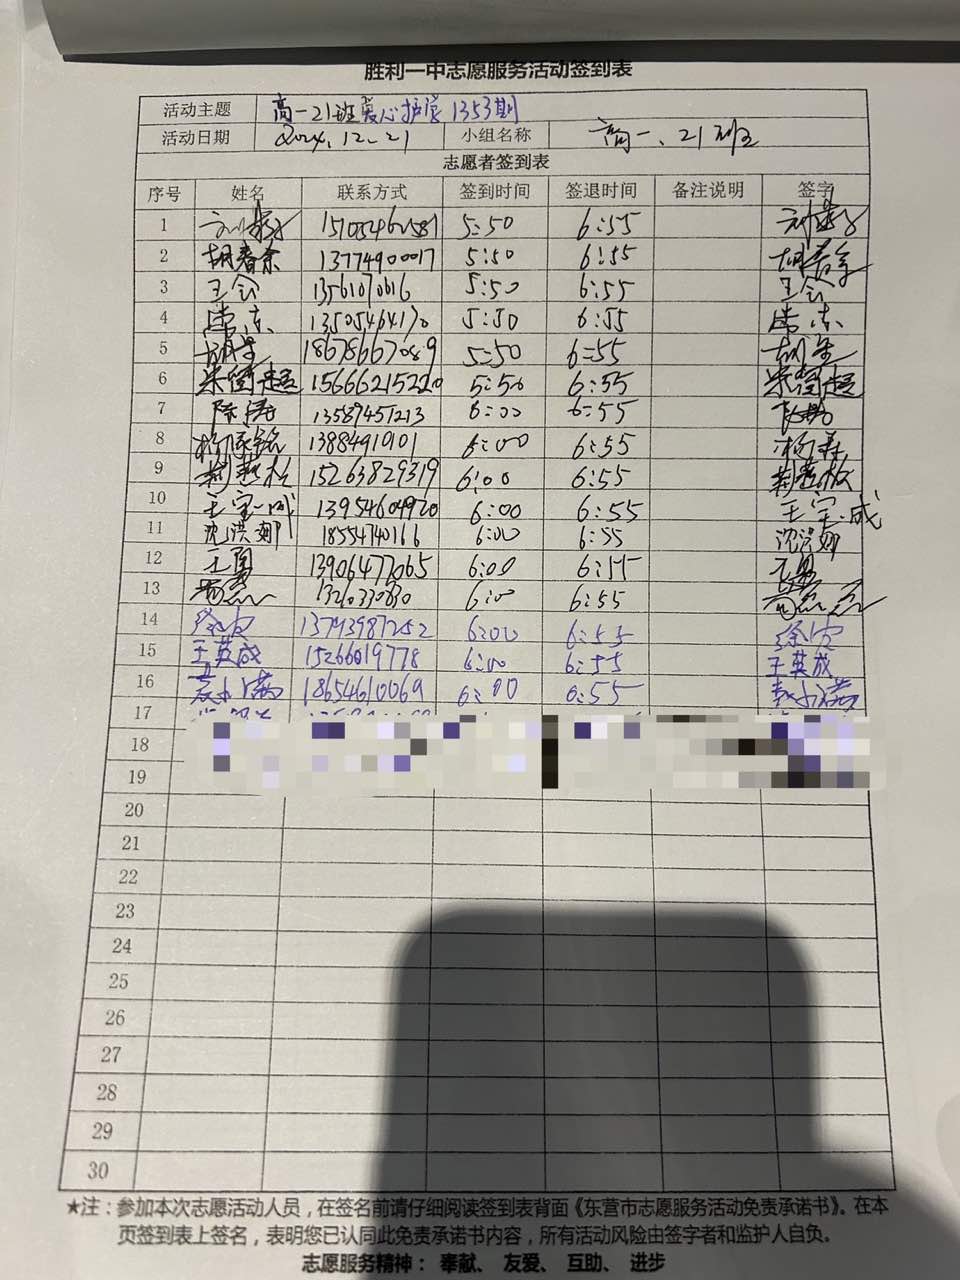 胜利一中志愿服务活动签到表
活动主题 高一21班爱心护学1353期
活动日期 2024.12.21 小组名称 高一.21班
志愿者签到表
序号 姓名 联系方式 签到时间 签退时间 备注说明 签字
1 5:50 6:55
2 胡春余 13774900017 5:50 6:55
3 王会 13561070616 5:50 6:55 王会
4 常志 13505464170 5:50 6:55 常志
5 18678667089 5:50 6:55
6 15666215220 5:50 6:55
7 陈涛 13589451213 6:00 6:55
8 13884910101 6:00 6:55
9 荆燕枚 15263829319 6:00 6:55 荆燕枚
10 王宝成 13954604920 6:00 6:55 王宝成
11 沈洪娜 18554740166 6:00 6:55 沈洪娜
12 王勇 13906477065 6:00 6:55 王勇
13 1320330830 6:00 6:55
14 13793987252 6:00 6:55
15 王英成 15266019778 6:00 6:55 王英成
16 18654610069 6:00 6:55
17
18
19
20
21
22
23
24
25
26
27
28
29
30
★注：参加本次志愿活动人员，在签名前请仔细阅读签到表背面《东营市志愿服务活动免责承诺书》。在本
页签到表上签名，表明您已认同此免责承诺书内容，所有活动风险由签字者和监护人自负。
志愿服务精神： 奉献、 友爱、 互助、 进步